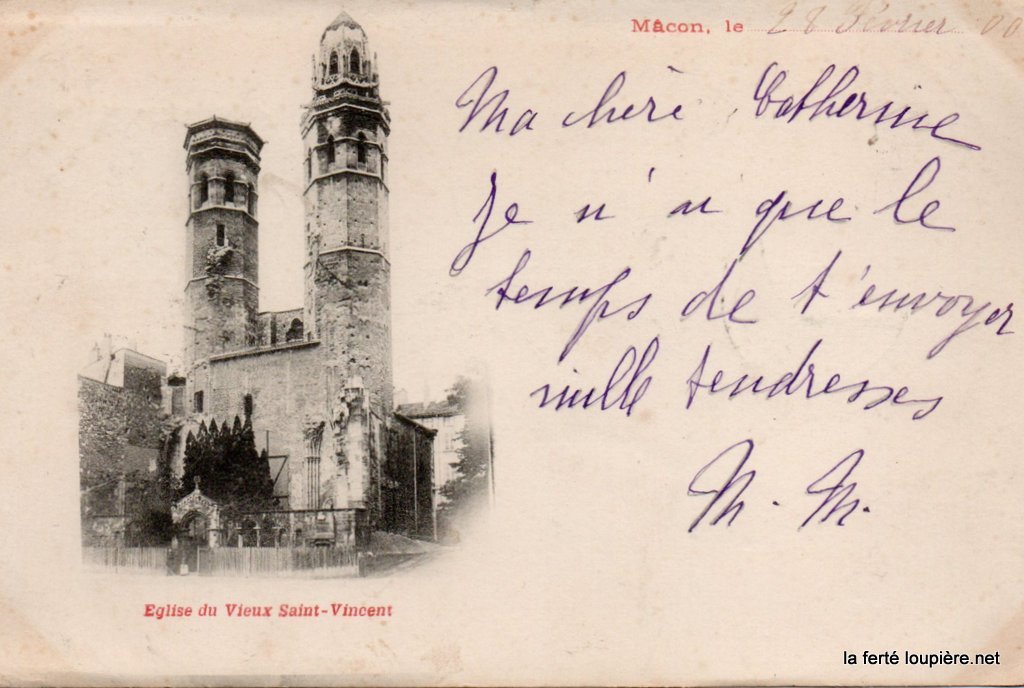 Mâcon, le 28 Février 00
Ma chère Catherine
Je n'ai que le
temps de t'envoyer
mille tendresses
M. M.
Eglise du Vieux Saint-Vincent
la ferté loupière.net